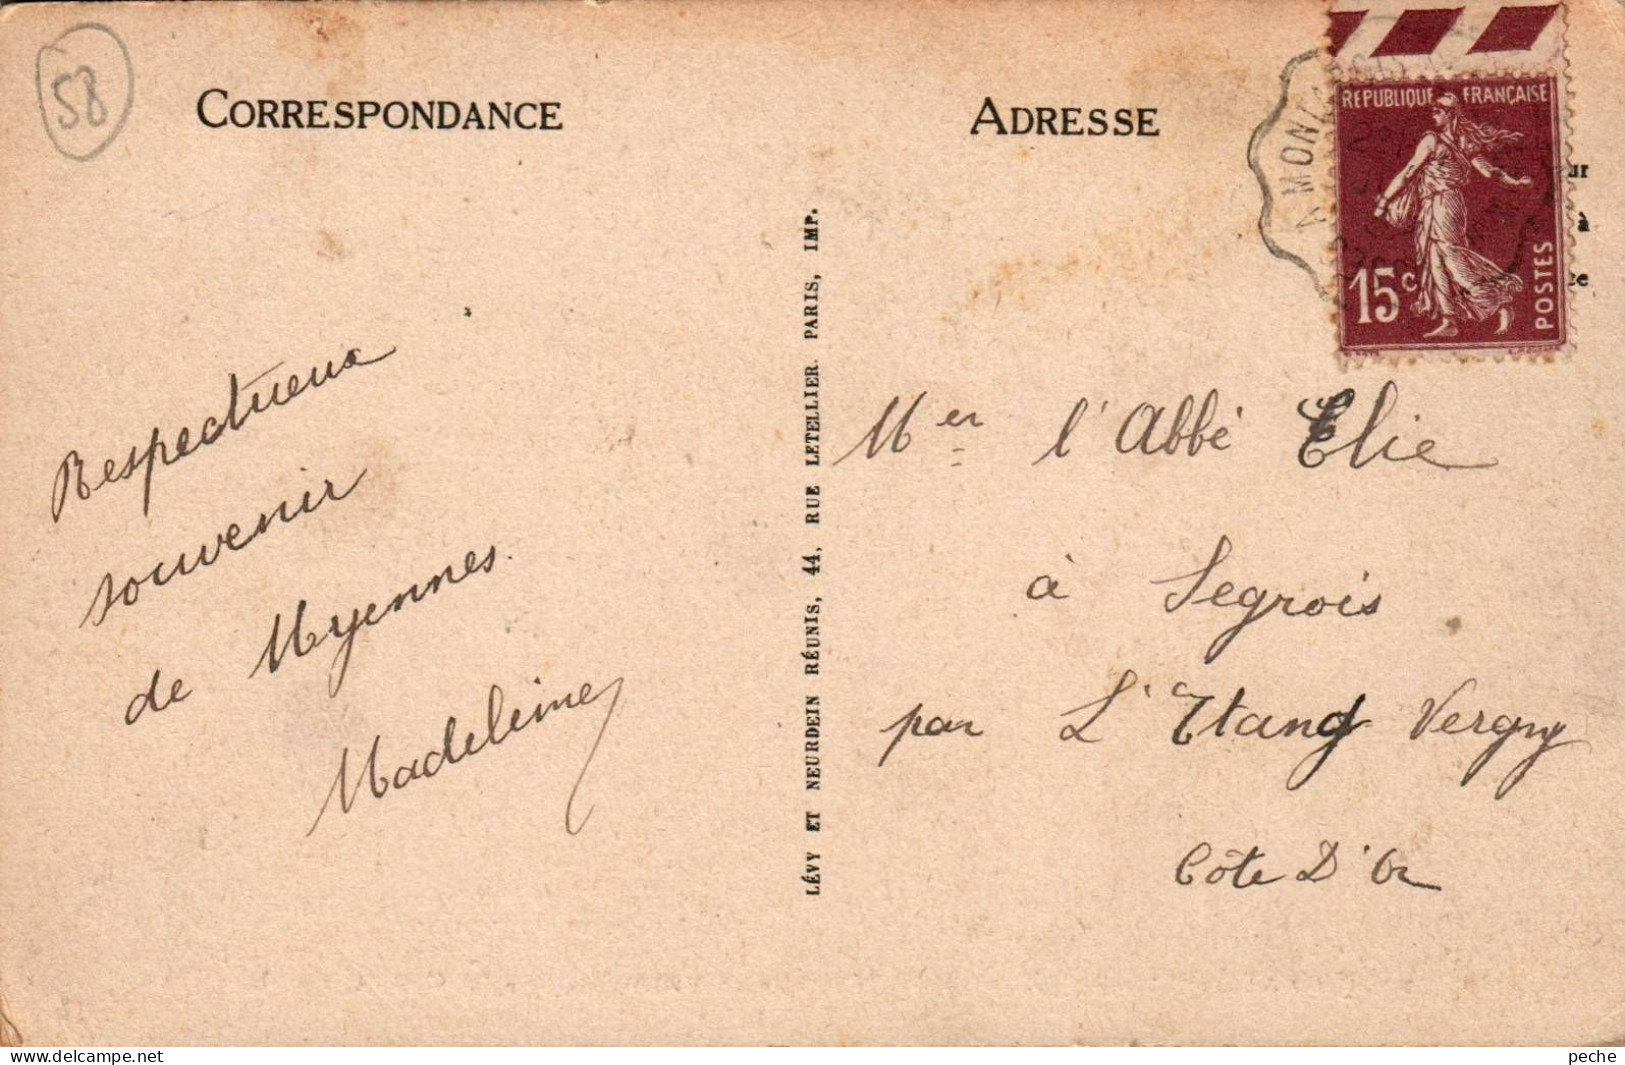 58
CORRESPONDANCE
ADRESSE
RÉPUBLIQUE FRANÇAISE
15c
POSTES
A MON
ur
à
ce
Respectueux
souvenir
de Myennes.
Madeleine
LÉVY ET NEURDEIN RÉUNIS, 44, RUE LETELLIER PARIS, IMP.
Mer l'Abbé Elie
à Segrois
par L'Etang Vergy
Côte D'Or
www.delcampe.net
peche